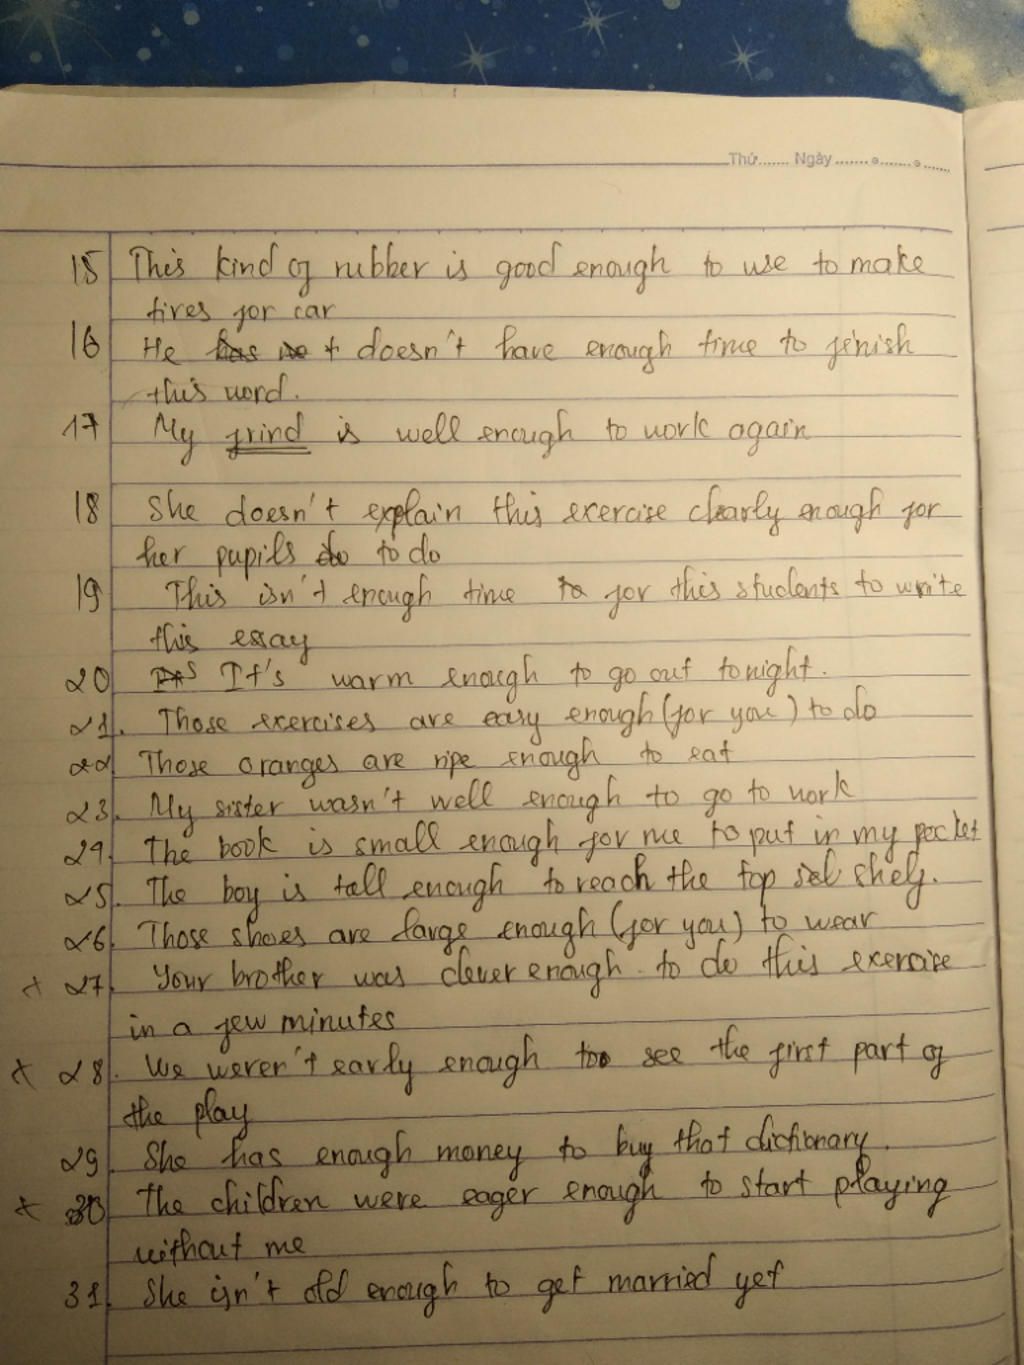 Thứ....... Ngày...............
15 This kind of rubber is good enough to use to make
tires for car
16 He has no t doesn't have enough time to finish
this word.
17 My frind is well enough to work again
18 She doesn't explain this exercise clearly enough for
her pupils do to do
19 This isn't enough time to for this students to write
this essay
20 It's warm enough to go out tonight.
21. Those exercises are easy enough (for you) to do
22 Those oranges are ripe enough to eat
23. My sister wasn't well enough to go to work
24. The book is small enough for me to put in my pocket
25. The boy is tall enough to reach the top shelf.
26. Those shoes are large enough (for you) to wear
x 27. Your brother was clever enough to do this exercise
in a few minutes
x 28. We weren't early enough to see the first part of
the play
29. She has enough money to buy that dictionary.
x 30 The children were eager enough to start playing
without me
31. She isn't old enough to get married yet